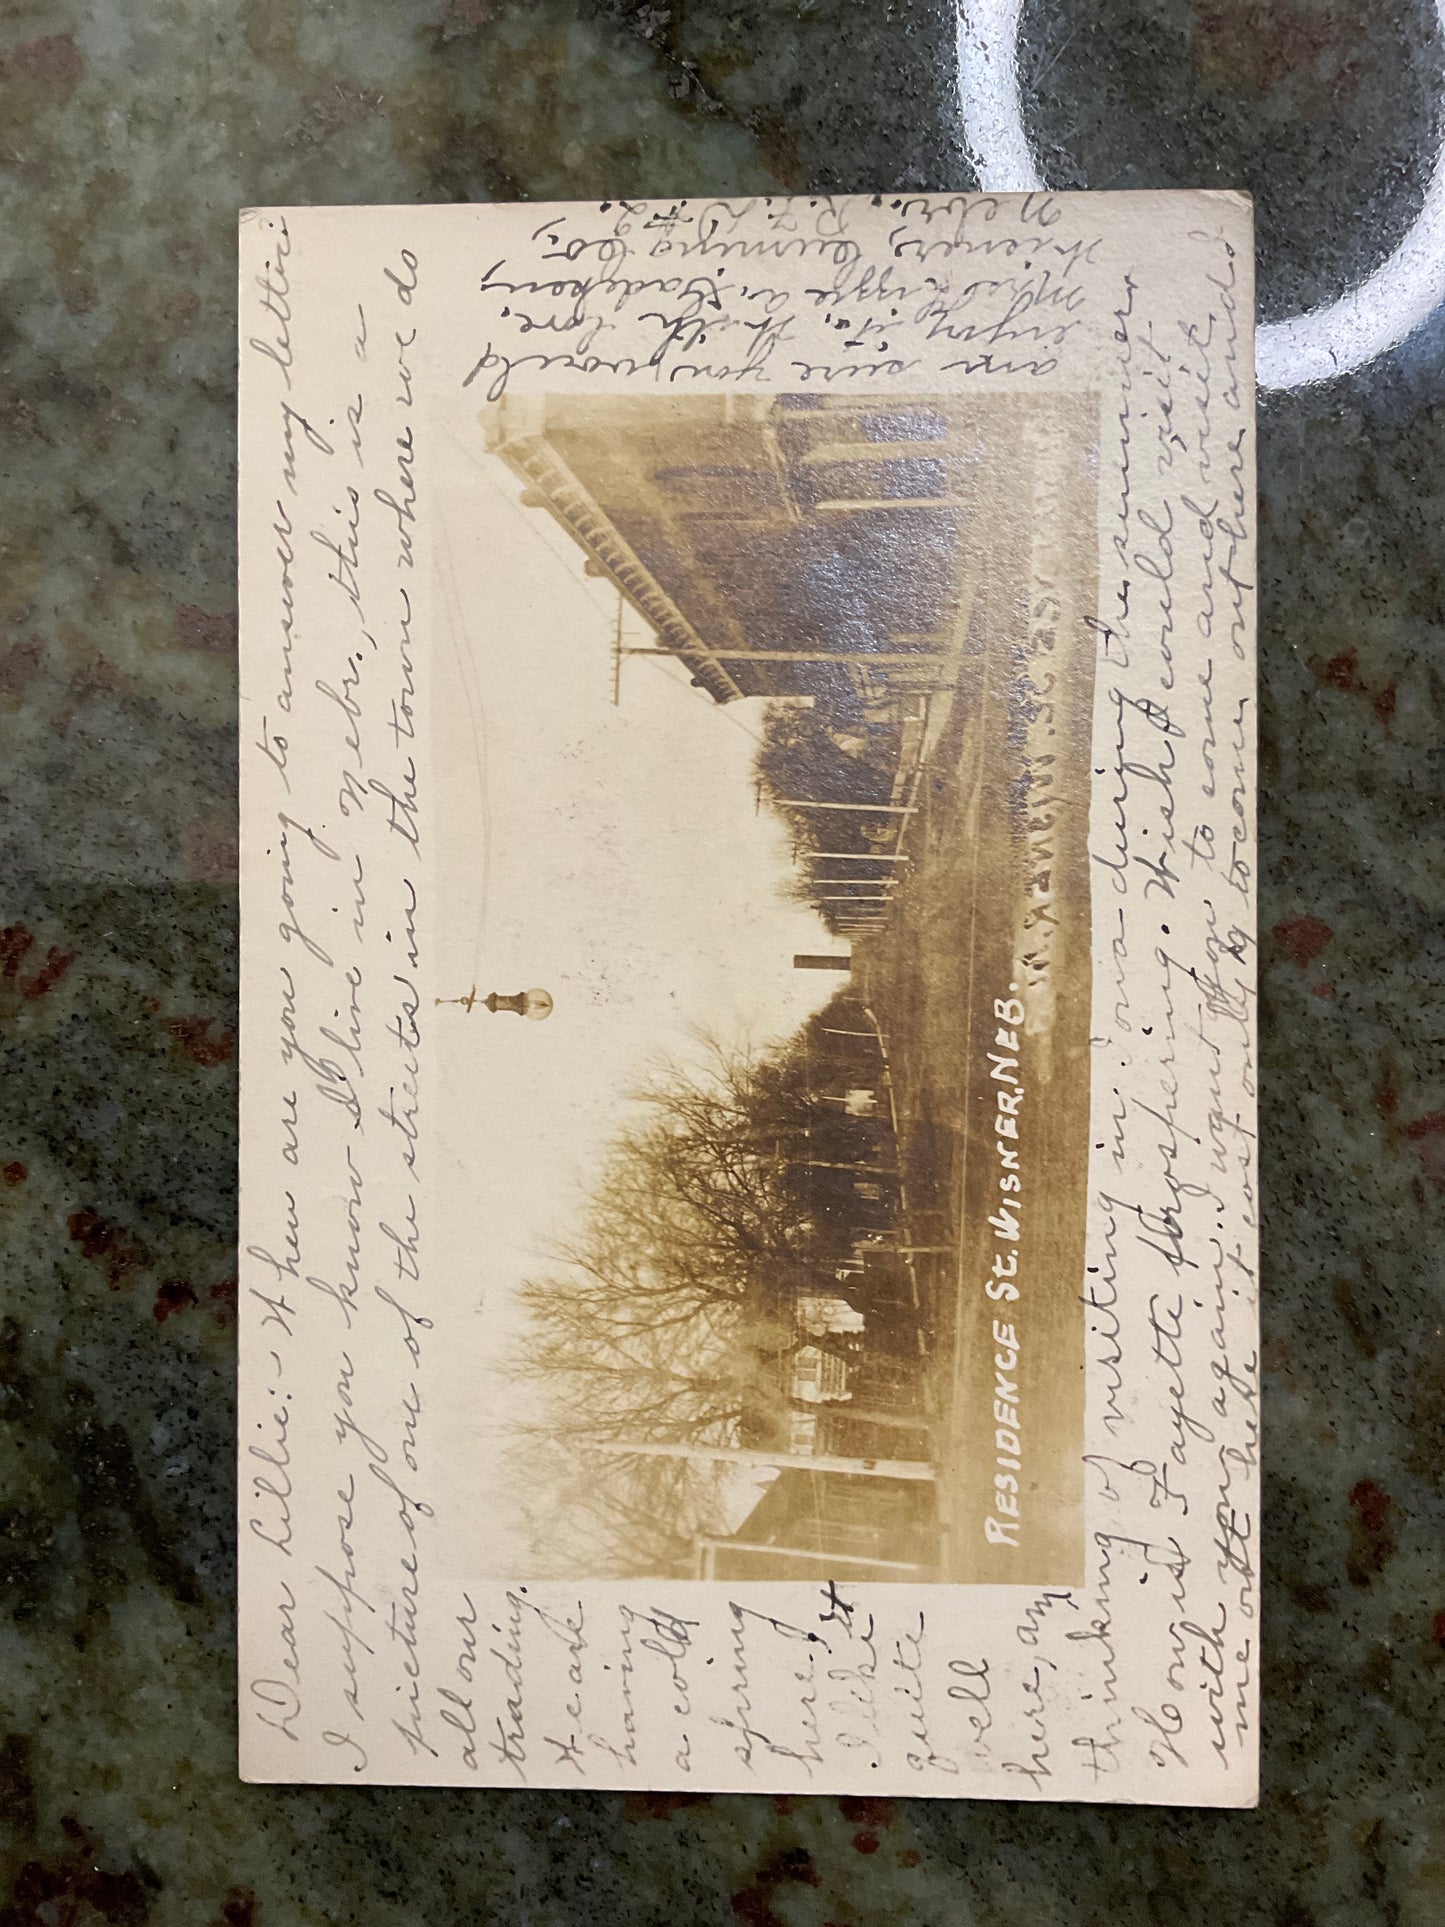 Dear Lillie:- When are you going to answer my letter:
I suppose you know I live in Nebr., this is a
picture of one of the streets in the town where we do
all our
trading.
We are
having
a cold
spring
here. I
I like it
quite
well
here, am
thinking of visiting in Iowa during the summer
How is Fayette prospering. Wish I could visit
with you again. I want you to come and visit
me out here it cost only to come out here and
am sure you would
enjoy it. With love.
Mrs. Lizzie A. Gadeken,
Wisner, Cuming Co.,
Nebr. R.F.D #2.
RESIDENCE ST. WISNER. NEB.